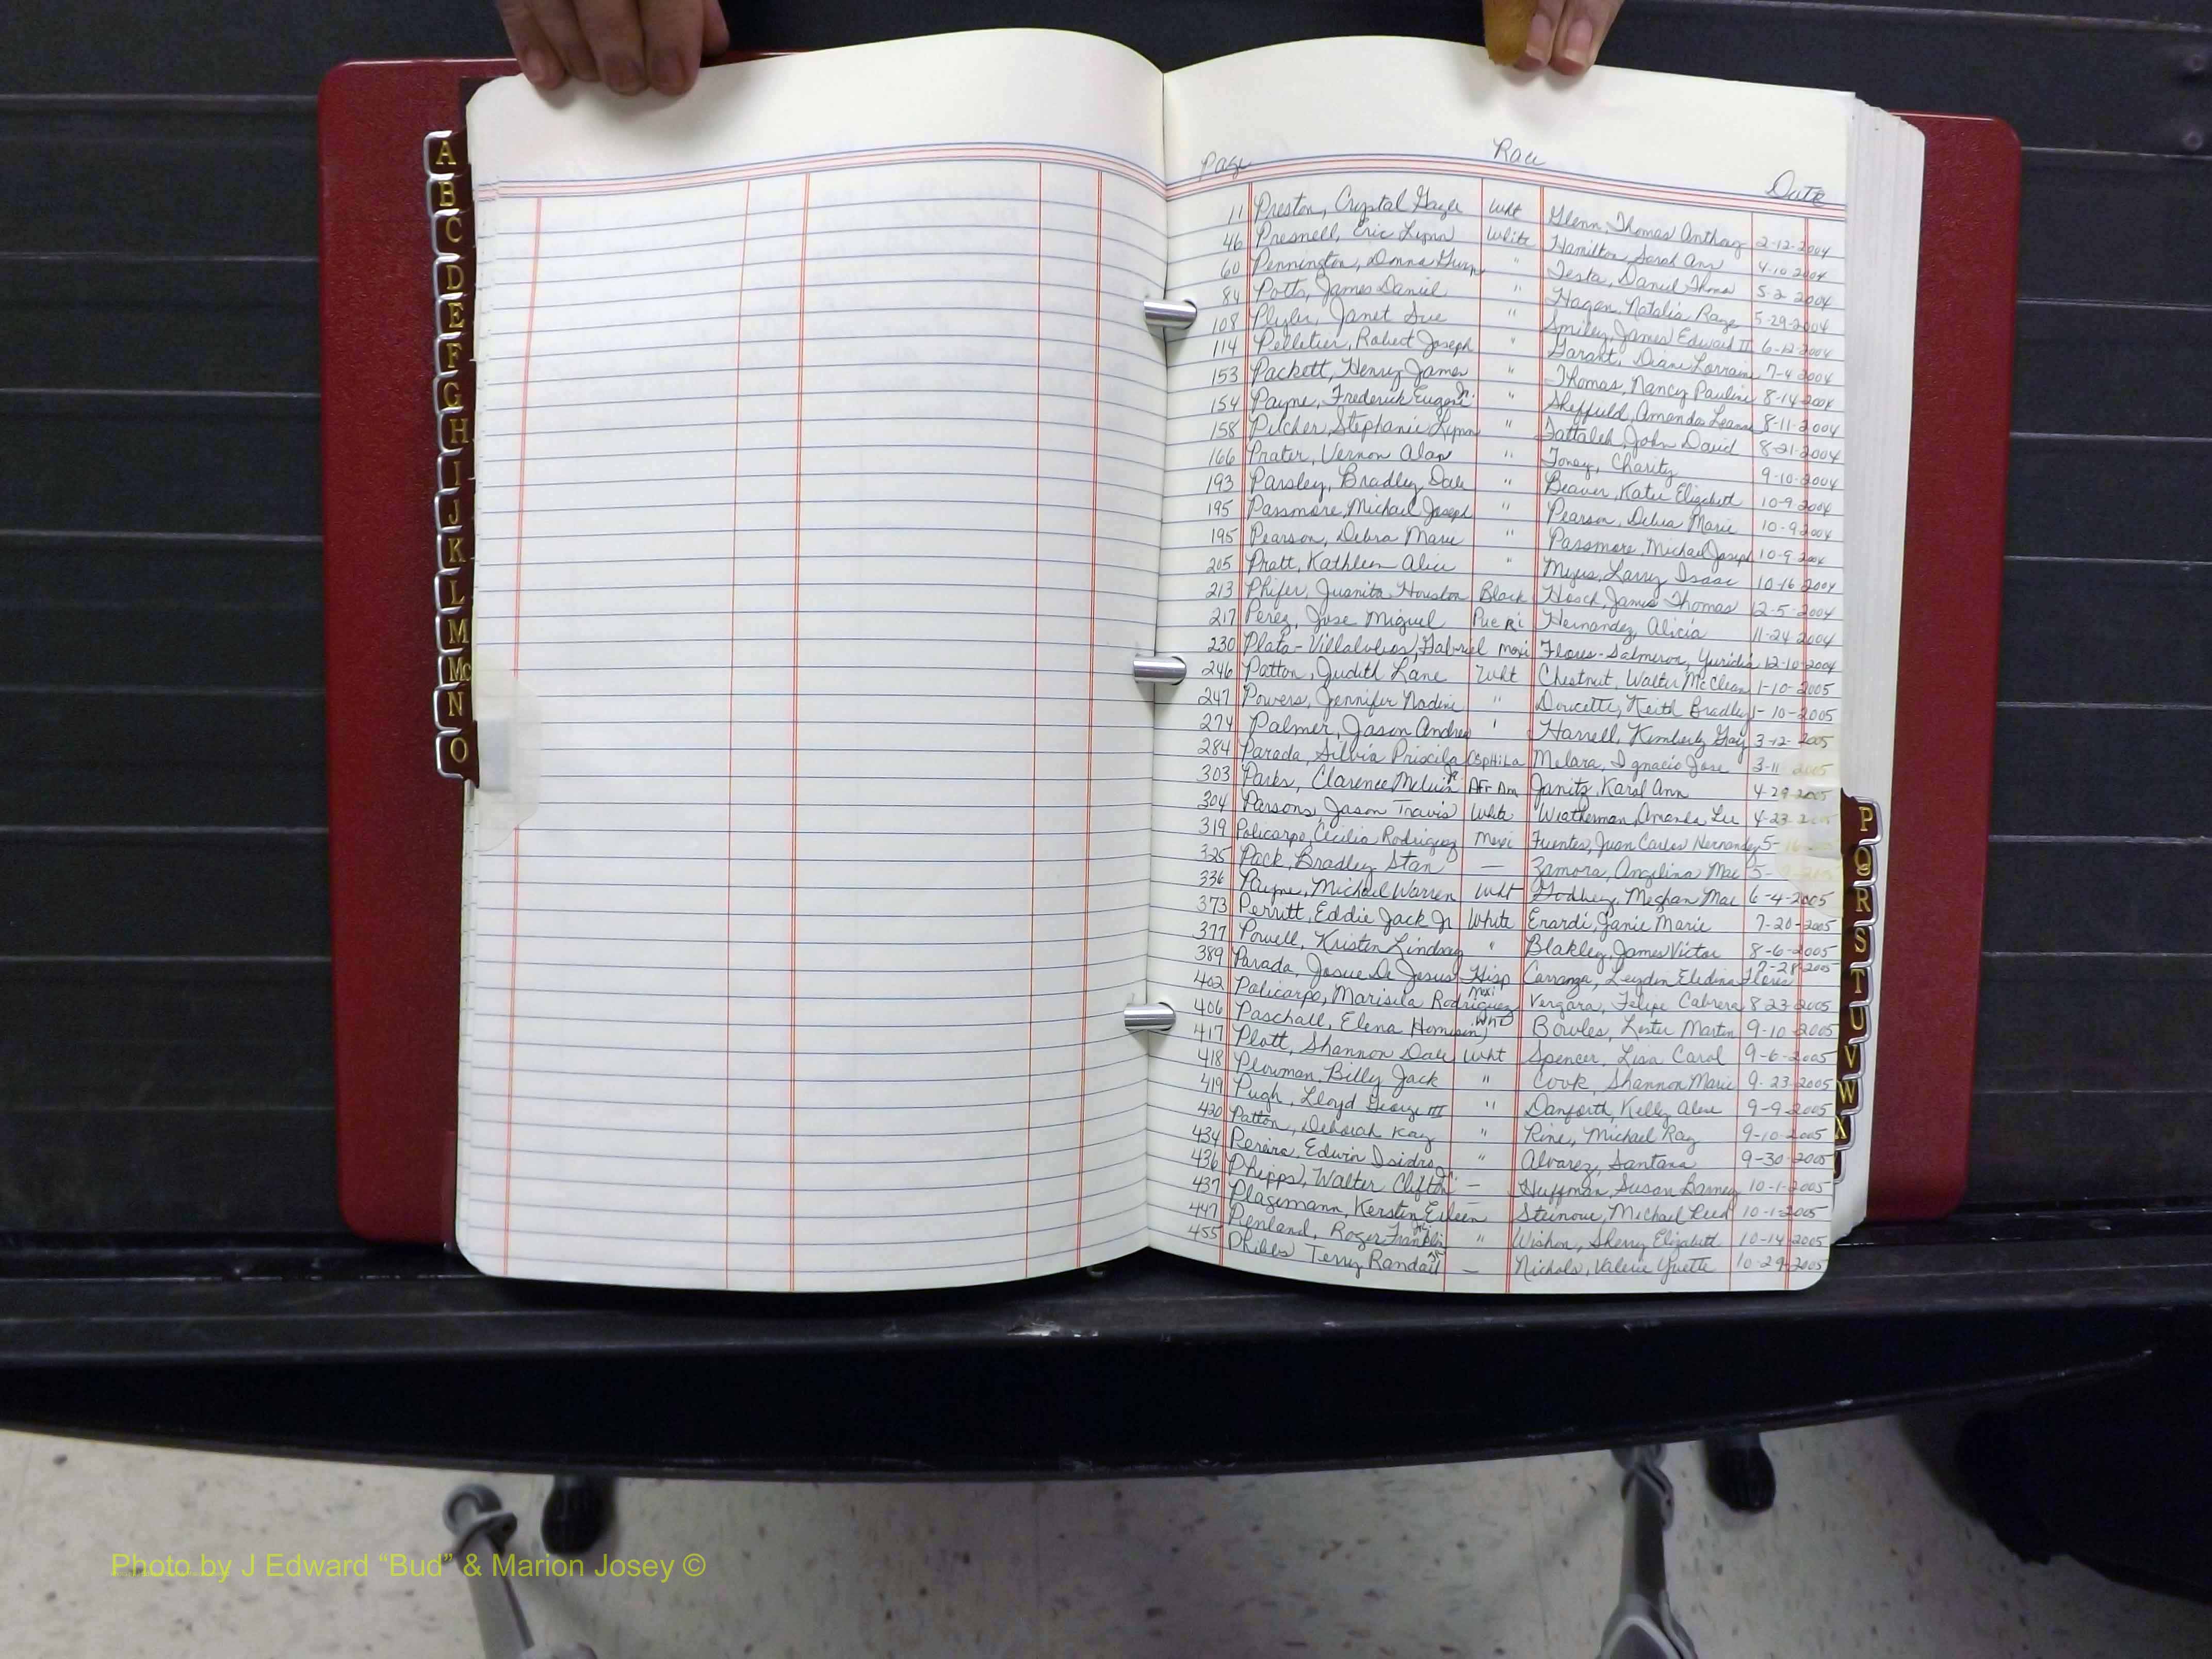 A
B
C
D
E
F
G
H
I
J
K
L
M
Mc
N
O
Page Race Date
11 Preston, Crystal Gayle Wht Glenn, Thomas Anthony 2-12-2004
46 Presnell, Eric Lynn White Hamilton, Sarah Ann 4-10 2004
60 Pennington, Donna " Testa, Daniel 5-2 2004
84 Potts, James Daniel " Hagan, Natalie Raye 5-29-2004
108 Plyler, Janet Sue " Smiley, James Edward II 6-12-2004
114 Pelletier, Robert Joseph " Garant, Diane Lorraine 7-4 2004
153 Packett, Henry James " Thomas, Nancy Pauline 8-14-2004
154 Payne, Frederick Eugene Jr. " Sheffield, Amanda Leanne 8-11-2004
158 Pilcher, Stephanie Lynn " Tattaleh, John David 8-21-2004
166 Prater, Vernon Alan " Toney, Charity 9-10-2004
193 Parsley, Bradley Dale " Beaver, Katie Elizabeth 10-9 2004
195 Passmore, Michael Joseph " Pearson, Debra Marie 10-9 2004
195 Pearson, Debra Marie " Passmore, Michael Joseph 10-9 2004
205 Pratt, Kathleen Alice " Larry Isaac 10-16 2004
213 Phifer, Juanita Houston Black Hosch, James Thomas 12-5-2004
217 Perez, Jose Miguel Pue Ri Hernandez, Alicia 11-24 2004
230 Plata-Villalobos, Gabriel Mexi Flores-Salmeron, Yuridia 12-10-2004
246 Patton, Judith Lane Wht Chestnut, Walter McClean 1-10-2005
247 Powers, Jennifer Nadine " Doucette, Keith Bradley 1-10-2005
274 Palmer, Jason Andrew ' Harrell, Kimberly Gay 3-12-2005
284 Parada, Silvia Priscila Melara, Ignacio Jose 3-11 2005
303 Parks, Clarence Melvin Jr. Afr Am Janitz, Karol Ann 4-29-2005
304 Parsons, Jason Travis White Weatherman, Amanda Lee 4-23-2005
319 Policarpo, Cecilia Rodriguez Mexi Fuentes, Juan Carlos Hernandez 5-16
325 Pack, Bradley Stan — Zamora, Angelina Mae 5-
336 Payne, Michael Warren Wht Godbey, Meghan Mae 6-4-2005
373 Perritt, Eddie Jack Jr White Erardi, Janie Marie 7-20-2005
377 Powell, Kristen Lindsay " Blakley, James Victor 8-6-2005
389 Parada, Josue De Jesus Hisp Carranza, Leyden Elidina Flores 7-28-2005
402 Policarpo, Marisela Rodriguez Mexi Vergara, Felipe Cabrera 8 23-2005
406 Paschall, Elena Wht Bowles, Lester Martin 9-10-2005
417 Platt, Shannon Dale Wht Spencer, Lisa Carol 9-6-2005
418 Plowman, Billy Jack " Cook, Shannon Marie 9-23-2005
419 Pugh, Lloyd George III " Danforth, Kelly 9-9-2005
420 Patton, Deborah Kay " Rine, Michael Ray 9-10-2005
434 Pereira, Edwin Isidro " Alvarez, Santana 9-30-2005
436 Phipps, Walter Clifton Jr. — Huffman, Susan Barney 10-1-2005
437 Plagemann, Kersten Eileen Steinour, Michael Reed 10-1-2005
447 Penland, Roger Franklin Jr. " Wishon, Sherry Elizabeth 10-14-2005
455 Phibbs Terry Randall Jr. — Nichols, Valerie Yvette 10-29-2005
P
Q
R
S
T
U
V
W
X
Photo by J Edward “Bud” & Marion Josey ©